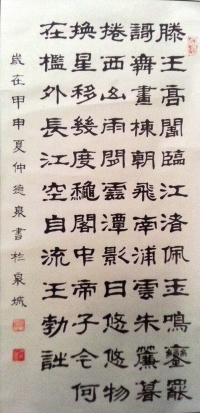 滕王高閣臨江渚佩玉鳴鑾罷
哥舞畫棟朝飛南浦雲朱簾暮
捲西山雨閒雲潭影日悠悠物
換星移幾度龝閣中帝子今何
在檻外長江空自流王勃詩
歲在甲申夏仲泉書於泉城